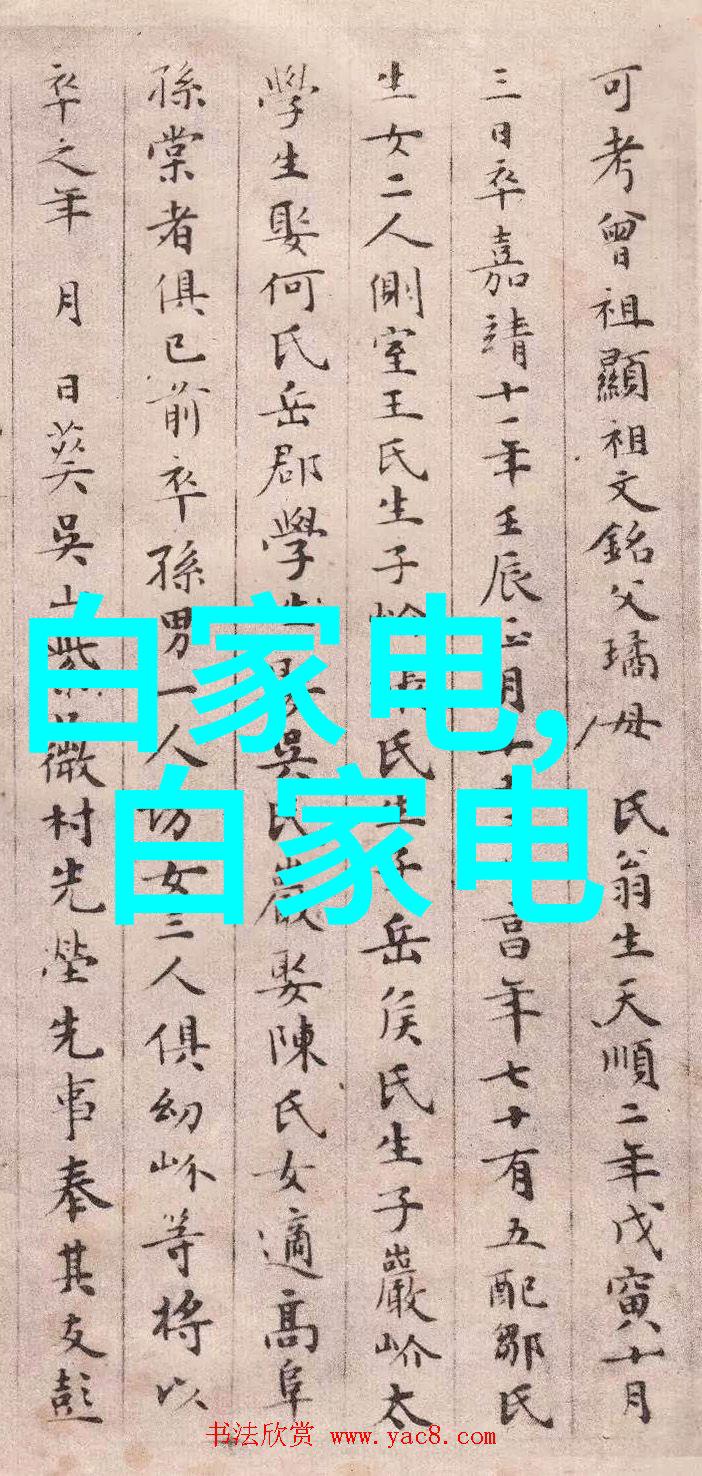 可考曾祖顯祖文銘父璚母 氏翁生天順二年戊寅十月
三日卒嘉靖十一年壬辰正月 高年七十有五配鄒氏
生女二人側室王氏生子 氏生子岳侯氏生子巖岕太
學生娶何氏岳郡學生娶吳氏巖娶陳氏女適高阜
孫棠者俱已前卒孫男一人 女三人俱幼岕等將以
卒之年 月 日葬吳山 村先塋先事奉其友彭
白家电,
白家电
书法欣赏 www.yac8.com